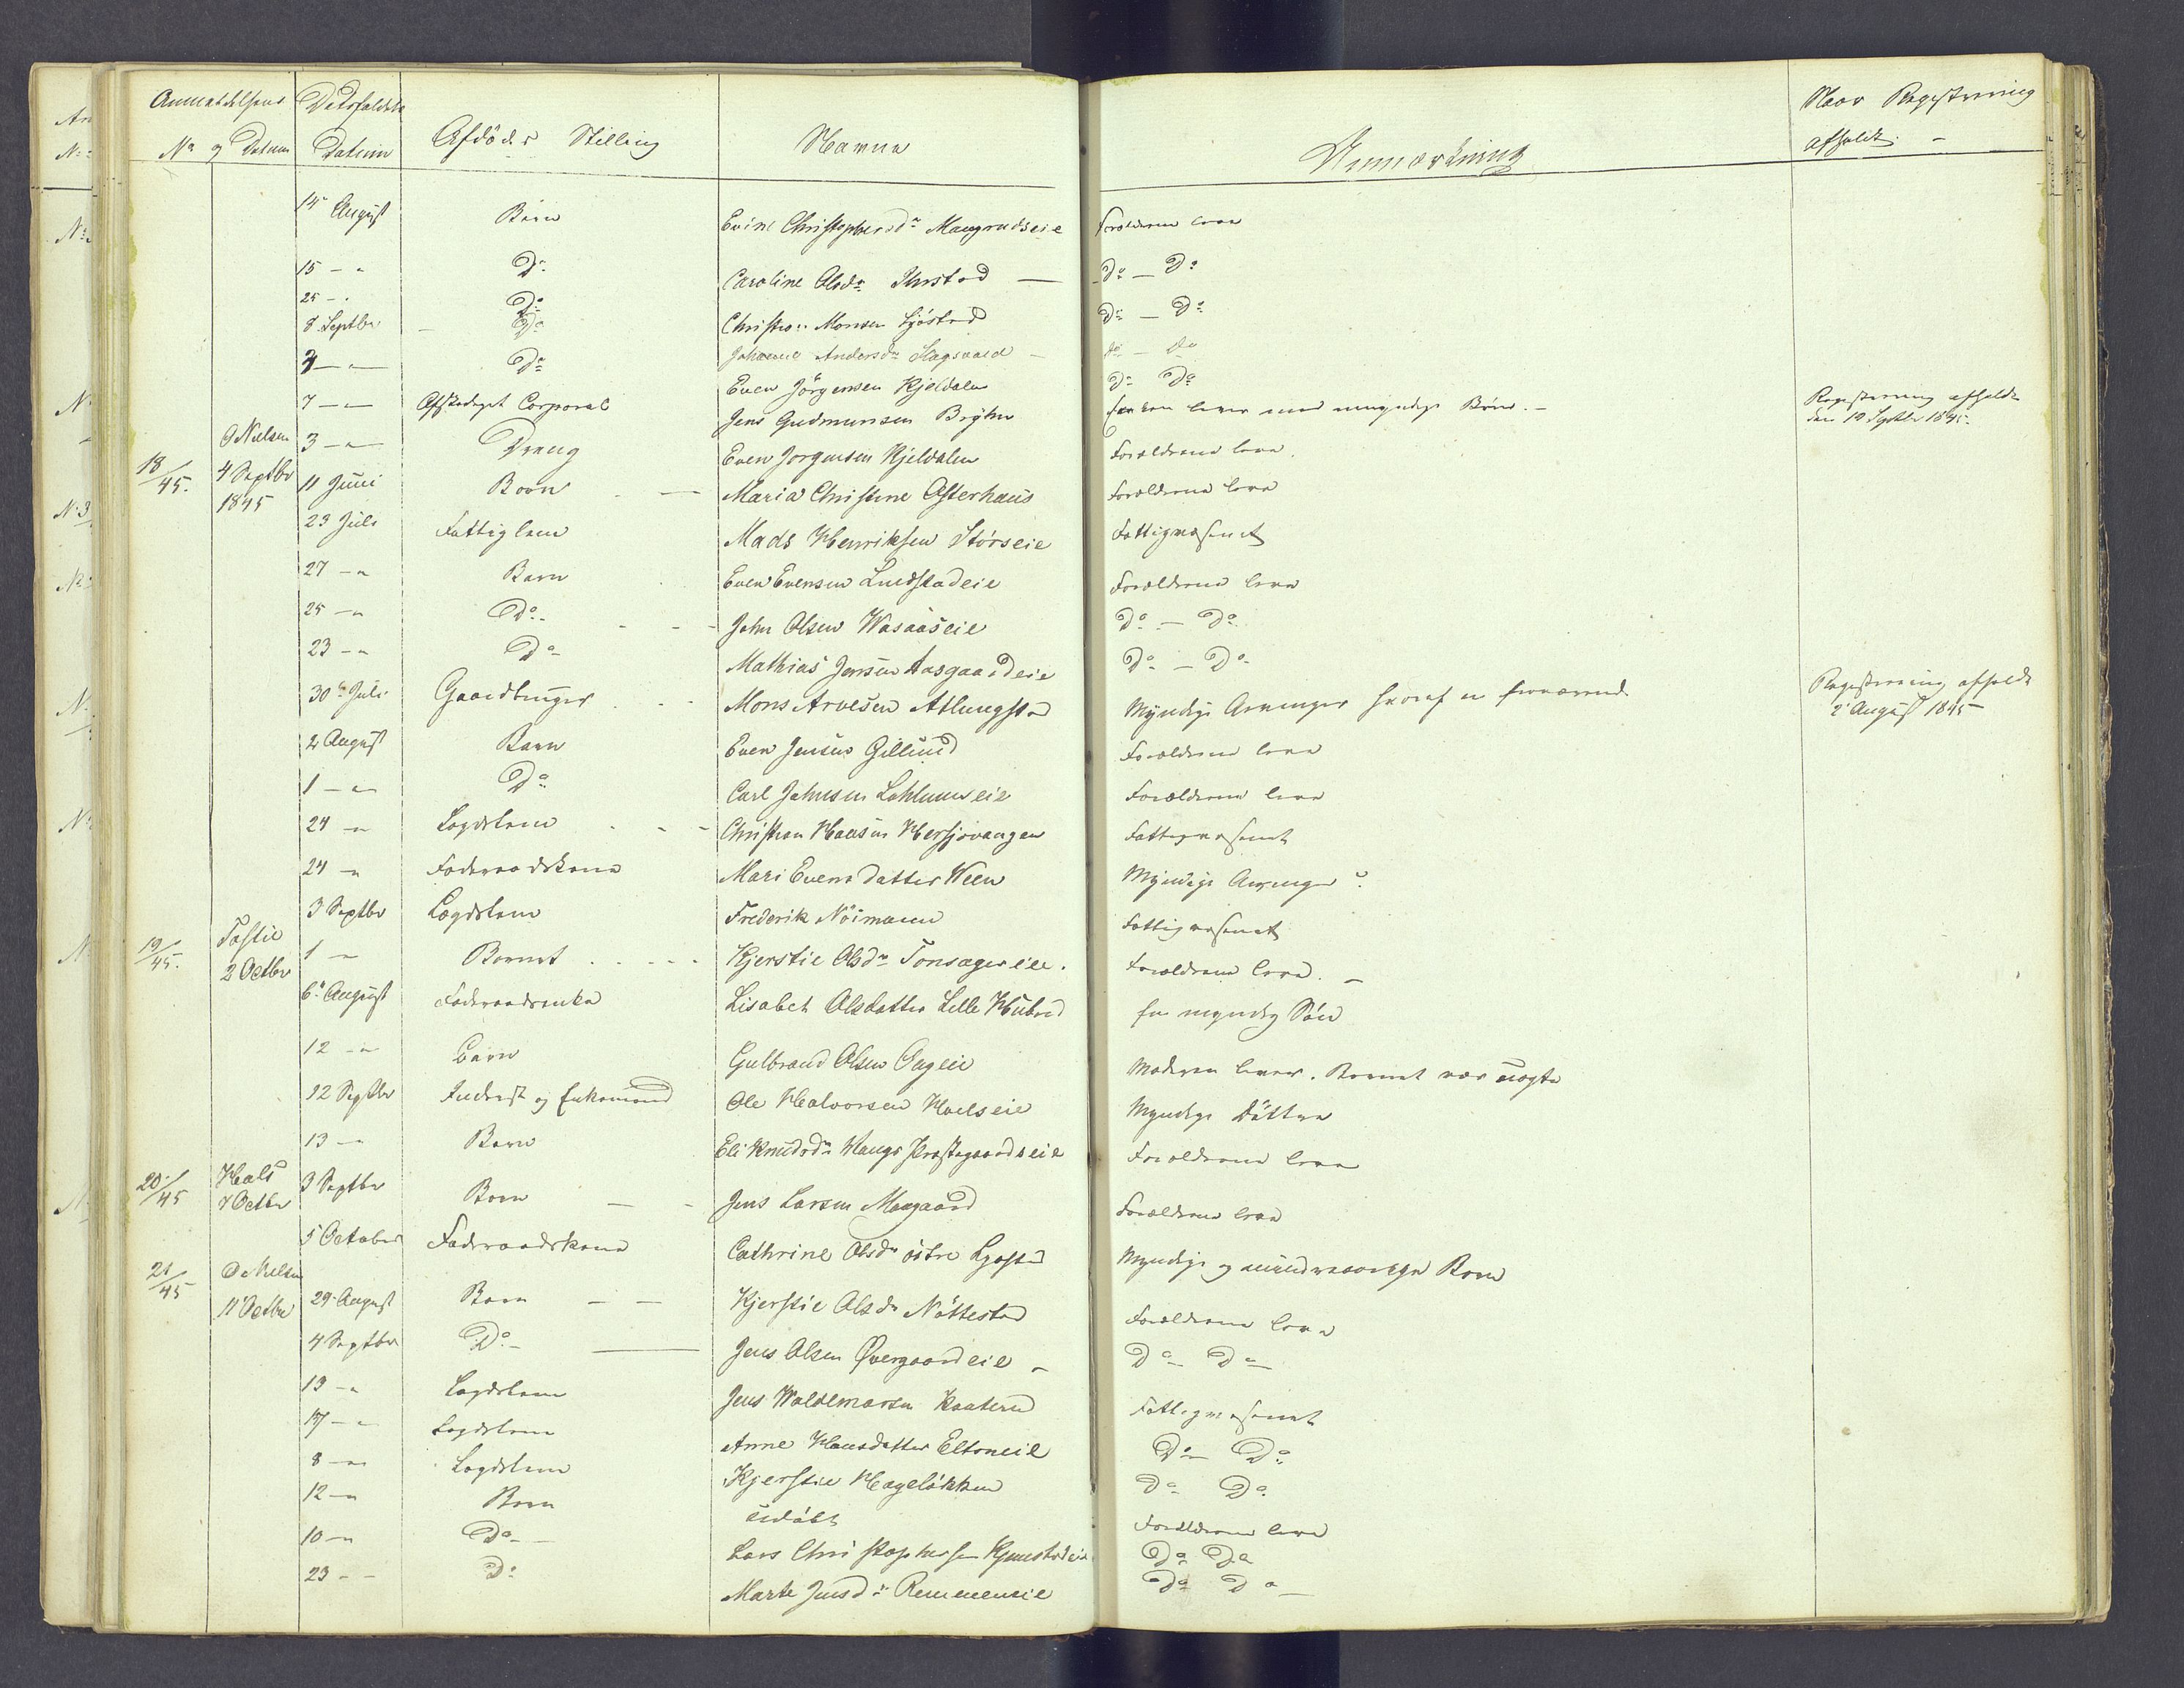 Anmældelsens Dødsfaldets
No og Datum Datum Afdødes Stilling Navne Anmærkning Naar Registrering afholdt. -
14 August Barn Evine Christophersdr Maugrudseie Forældrene leve
15 - " Do Caroline Olsdr Do - Do
25 - " Do Christian Monsen Sjöstad Do - Do
8 Septbr Do Johanne Andersdr Hagsvold Do - Do
3 - " Do Even Jörgensen Kjeldalen Do Do
7 - " Afskediget Corporal Jens Gudmunsen Bryhn lever med umyndige Börn. - Registrering afholdt den 10 Septbr 1845.
18/45. O Nielsen 4 Septbr 1845
3 - " Dreng Even Jorgensen Kjeldalen Forældrene leve.
11 Juni Barn Maria Christine Osterhaus Forældrene leve
23 Juli Fattiglem Mads Henriksen Störseie Fattigvæsenet
27 - " Barn Even Evensen Lundstadeie Forældrene leve
25 - " Do John Olsen Wasaaseie Do - Do
23 - " Do Mathias Jensen Aasgaardeie Do - Do
30 Juli Gaardbruger Mons Arvesen Atlungstad Myndige Arvinger hvoraf en fraværende Registrering afholdt 2 August 1845
2 August Barn Even Jensen Gillund Forældrene leve
1 - " Do Carl Johnsen Lohlumseie Forældrene leve
24 - " Lægdslem Christian Hansen Hersjövangen Fattigvæsenet
24 - " Föderaadskone Mari Evensdatter Ween Myndige Arvinger?
3 Septbr Lægdslem Frederik Nöimann Fattigvæsenet
19/45. Tostie 2 Octbr
1 - " Barnet Kjerstie Olsdr Tonsagereie. Forældrene leve. -
6 August Föderaadsenke Lisabet Olsdatter Lille Hubred En myndig Sön
12 - " Barn Gulbrand Olsen Moderen lever. Barnet var uægte
12 Septbr Inderst og Enkemand Ole Halvorsen Hoelseie Myndige Döttre
13 - " Barn Eli Knudsdr Vangs Præstegaardseie Forældrene leve
20/45 Hals 7 Octbr
3 Septbr Barn Jens Larsen Forældrene leve
5 October Föderaadskone Cathrine Olsdr östre Myndige og mindreaarige Börn
21/45 O Nielsen 11 Octbr
29 August Barn Kjerstie Olsdr Nöttestad Forældrene leve
4 Septbr Do Jens Olsen Øvergaardeie - Do Do
13 - " Lægdslem Jens Waldemarsen Fattigvæsenet
17 - " Lægdslem Anne Hansdatter Eltoneie Do Do
8 - " Lægdslem Kjerstie Hagelökken Do Do
12 - " Barn udöbt Forældrene leve
10 - " Do Lars Christophersen Do Do
23 - - Do Marte Jensdr Remmeneie Do Do